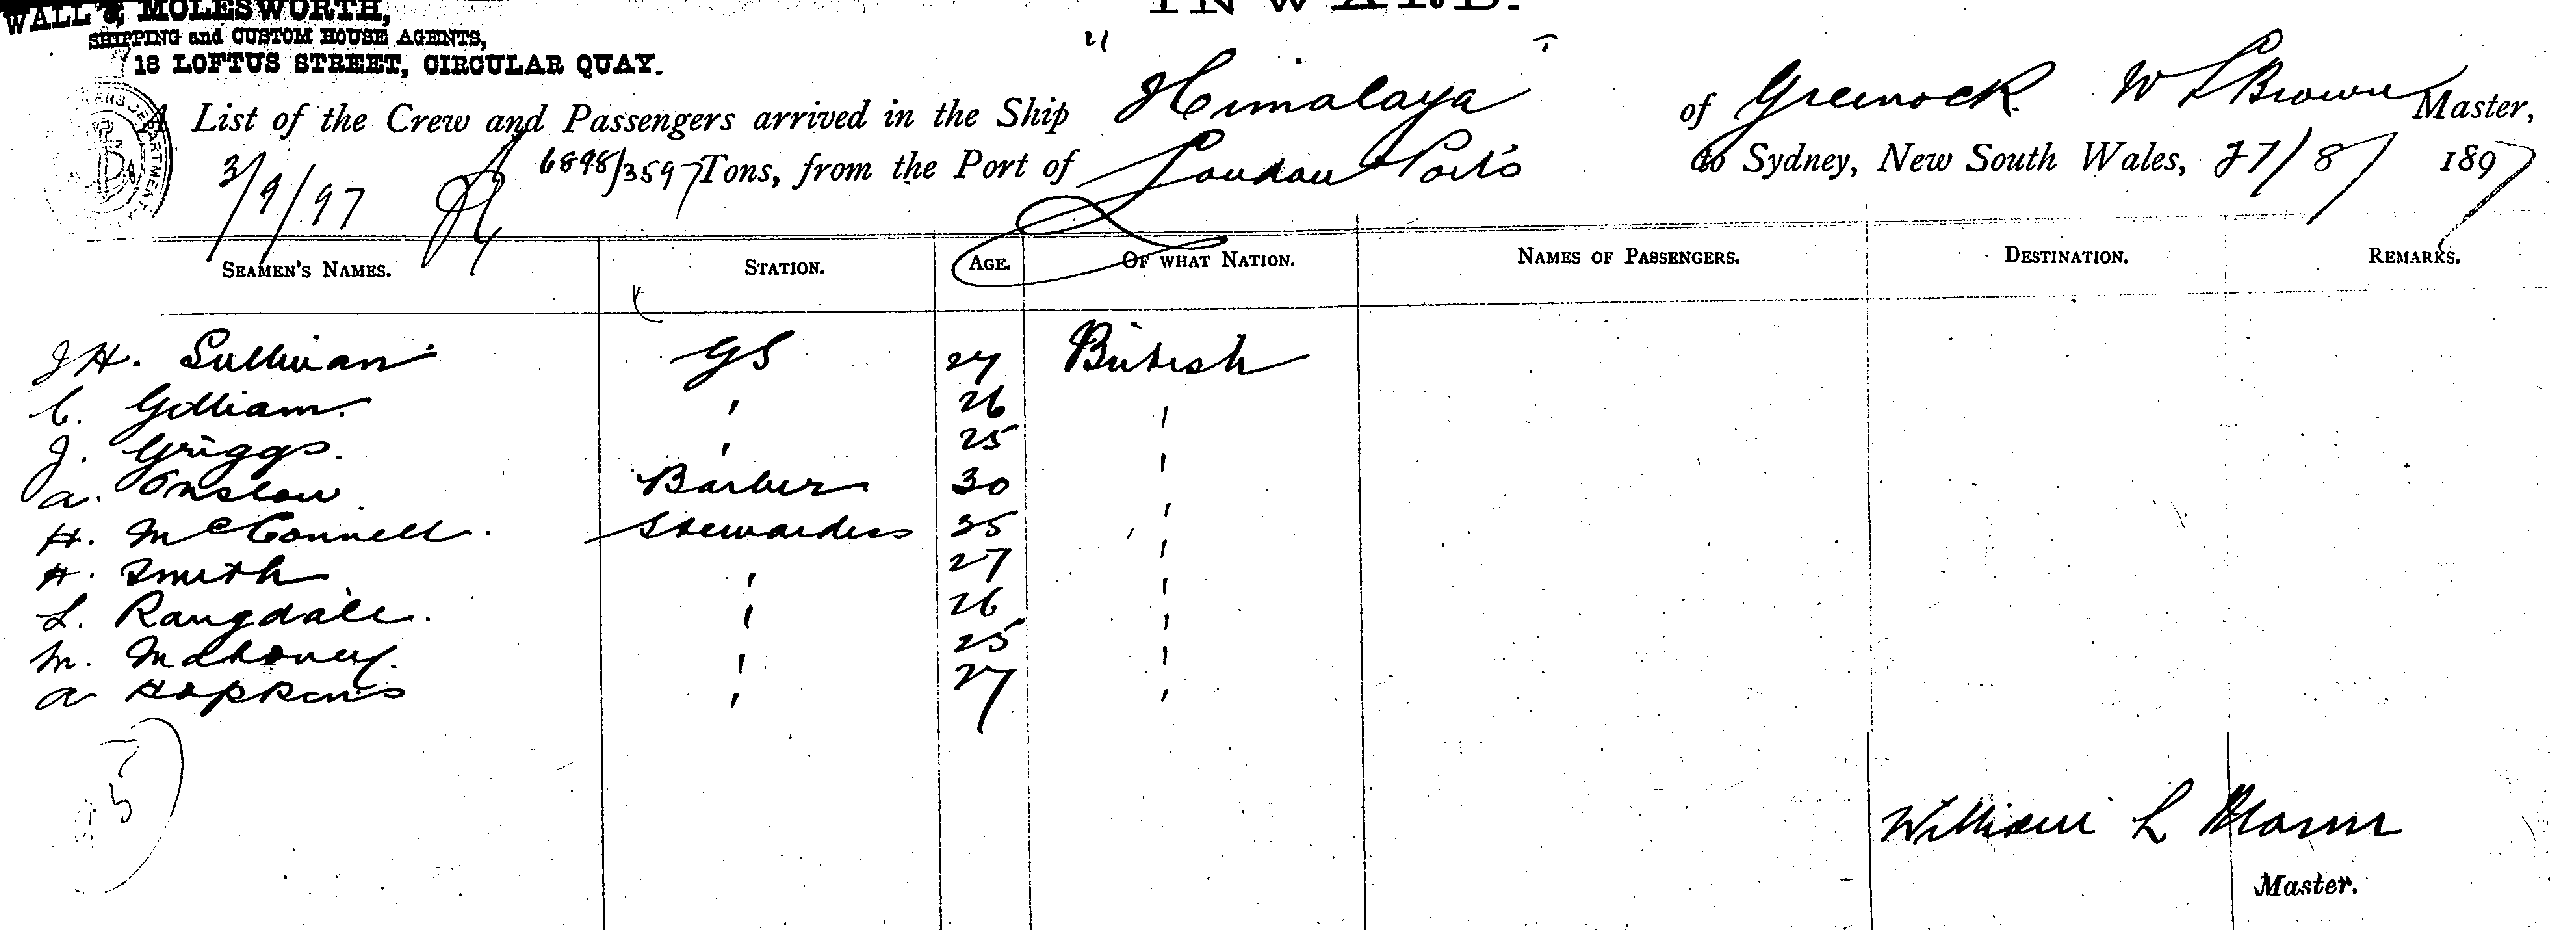 WALL & MOLESWORTH,
SHIPPING and CUSTOM HOUSE AGENTS,
18 LOFTUS STREET, CIRCULAR QUAY.
INWARD.
A List of the Crew and Passengers arrived in the Ship "Himalaya" of Greenock W L Brown Master,
3/9/97 6898/3597 Tons, from the Port of London & Ports to Sydney, New South Wales, 27/8/ 1897
SEAMEN'S NAMES. STATION. AGE. OF WHAT NATION. NAMES OF PASSENGERS. DESTINATION. REMARKS.
J H. Sullivan GS 27 British
C. Gilliam. ' 26 '
J. Griggs. ' 25 '
A. Onslow Barber 30 '
H. McConnell. Stewardess 35 '
H. Smith ' 27 '
L. Rangdale. ' 26 '
M. Mahoney. ' 25 '
A Hopkins ' 27 '
William L Brown
Master.